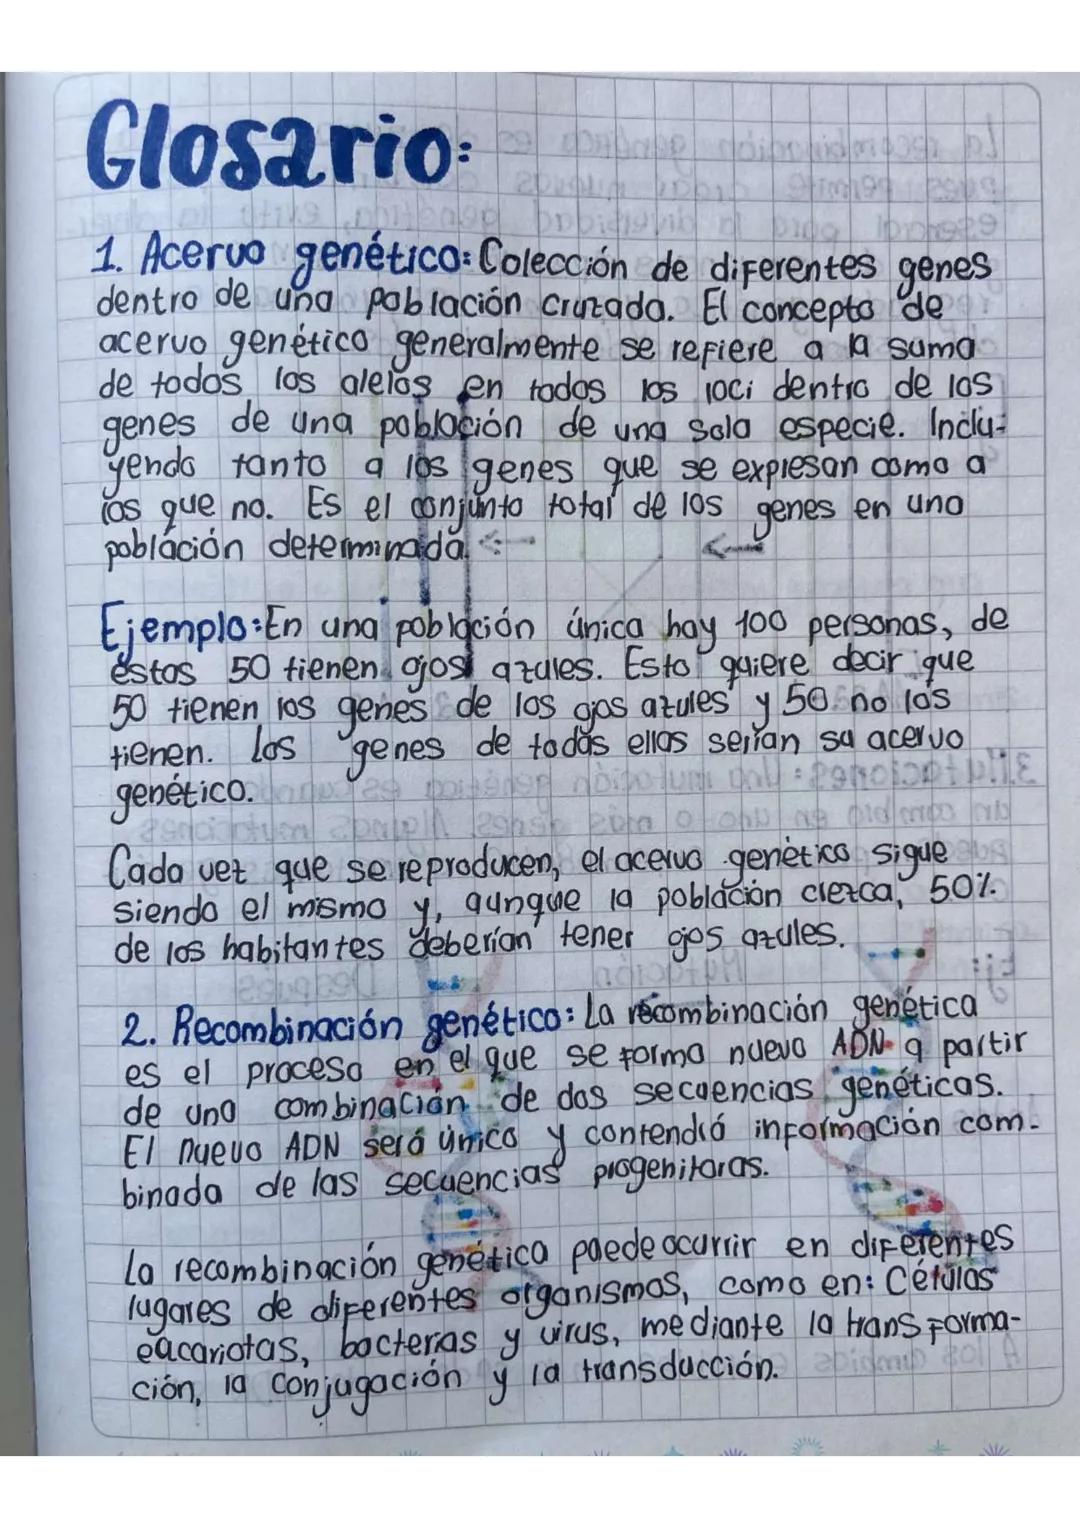 Glosario:
1. Acervo genético: Colección de diferentes genes
dentro de una población cruzada. El concepto de
acervo genético generalmente se refiere a la suma
de todos los alelos en todos los loci dentro de los
genes de una población de una sola especie. Inclu-
yendo tanto a los genes que se expresan como a
los que no. Es el conjunto total de los genes en una
población determinada.
Ejemplo: En una población única hay 100 personas, de
estas 50 tienen ojos azules. Esto quiere decir que
50 tienen los genes de los ojos azules y 50 no los
tienen. Los genes de todas ellas serían su acervo
genético.
Cada vez que se reproducen, el acervo genético sigue
siendo el mismo y, aunque la población crezca, 50%
de los habitantes deberían tener ojos azules.
2. Recombinación genético: La recombinación genética
es el proceso en el que se forma nuevo ADN a partir
de una combinación de dos secuencias genéticas.
El nuevo ADN será único y contendrá información com-
binada de las secuencias progenitoras.
La recombinación genética puede ocurrir en diferentes
lugares de diferentes organismos, como en: Células
eucariotas, bacterias y virus, mediante la transforma-
ción, la conjugación y la transducción.